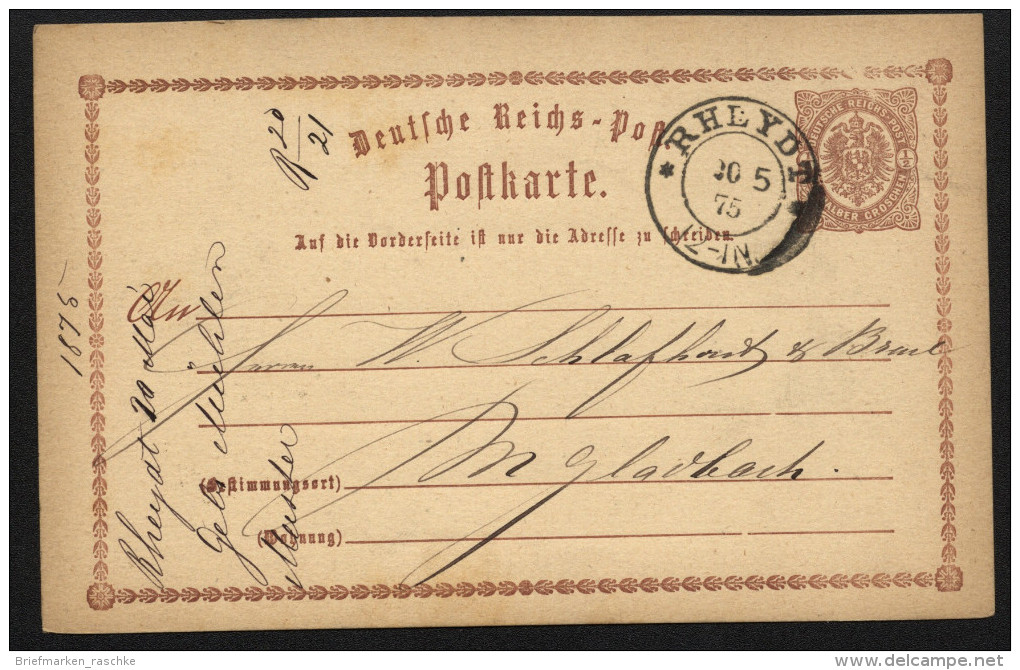 Deutsche Reichs-Post
Postkarte.
Auf die Vorderseite ist nur die Adresse zu schreiben.
DEUTSCHE REICHS-POST
1/2
HALBER GROSCHEN
* RHEYDT *
20 5
75
12-1N.
An
Herren W. Schlafhorst &
M Gladbach.
(Bestimmungsort)
(Wohnung)
R 20/21
1875
Rheydt 20 Mai
Gebr Mühlen
Muster
Briefmarken_raschke
delcampe.net